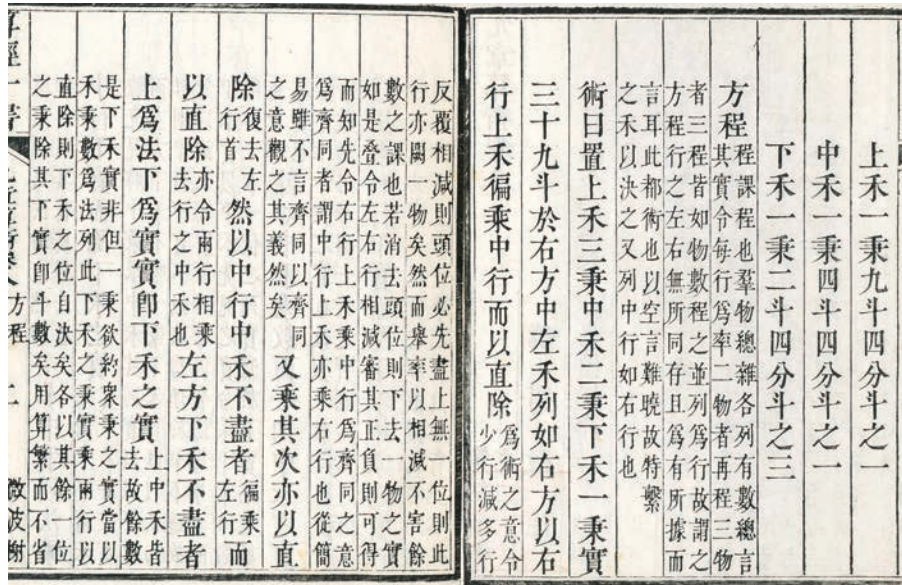 上禾一秉九斗四分斗之一
中禾一秉四斗四分斗之一
下禾一秉二斗四分斗之三
方程程課程也羣物總雜各列有數總言
其實令每行爲率二物者再程三物
者三程皆如物數程之並列爲行故謂之
方程行之左右無所同存且爲有所據而
言耳此都術也以空言難曉故特繫
之禾以決之又列中行如右行也
術曰置上禾三秉中禾二秉下禾一秉實
三十九斗於右方中左禾列如右方以右
行上禾徧乘中行而以直除爲術之意令少行減多行
反覆相減則頭位必先盡上無一位則此
行亦闕一物矣然而舉率以相減不害餘
數之課也若消去頭位則下去一物之實
如是疊令左右行相減審其正負則可得
而知先令右行上禾乘中行爲齊同之意
爲齊同者謂中行上禾亦乘右行也從簡
易雖不言齊同以齊同之意觀之其義然矣又乘其次亦以直
除復去左行首然以中行中禾不盡者徧乘左行而
以直除亦令兩行相乘去行之中禾也左方下禾不盡者
上爲法下爲實實卽下禾之實上中禾皆去故餘數
是下禾實非但一秉欲約衆秉之實當以
禾秉數爲法列此下禾之秉實乘兩行以
直除則下禾之位自決矣各以其餘一位
之秉除其下實卽斗數矣用算繁而不省
方程